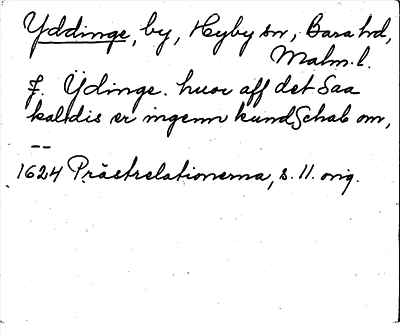 Yddinge, by, Hyby sn, Bara hd,
Malm. l.
F. Ÿdinge. huor aff det Saa
kaldis er ingenn kundschab om,
--
1624 Prästrelationerna, s. 11. orig.